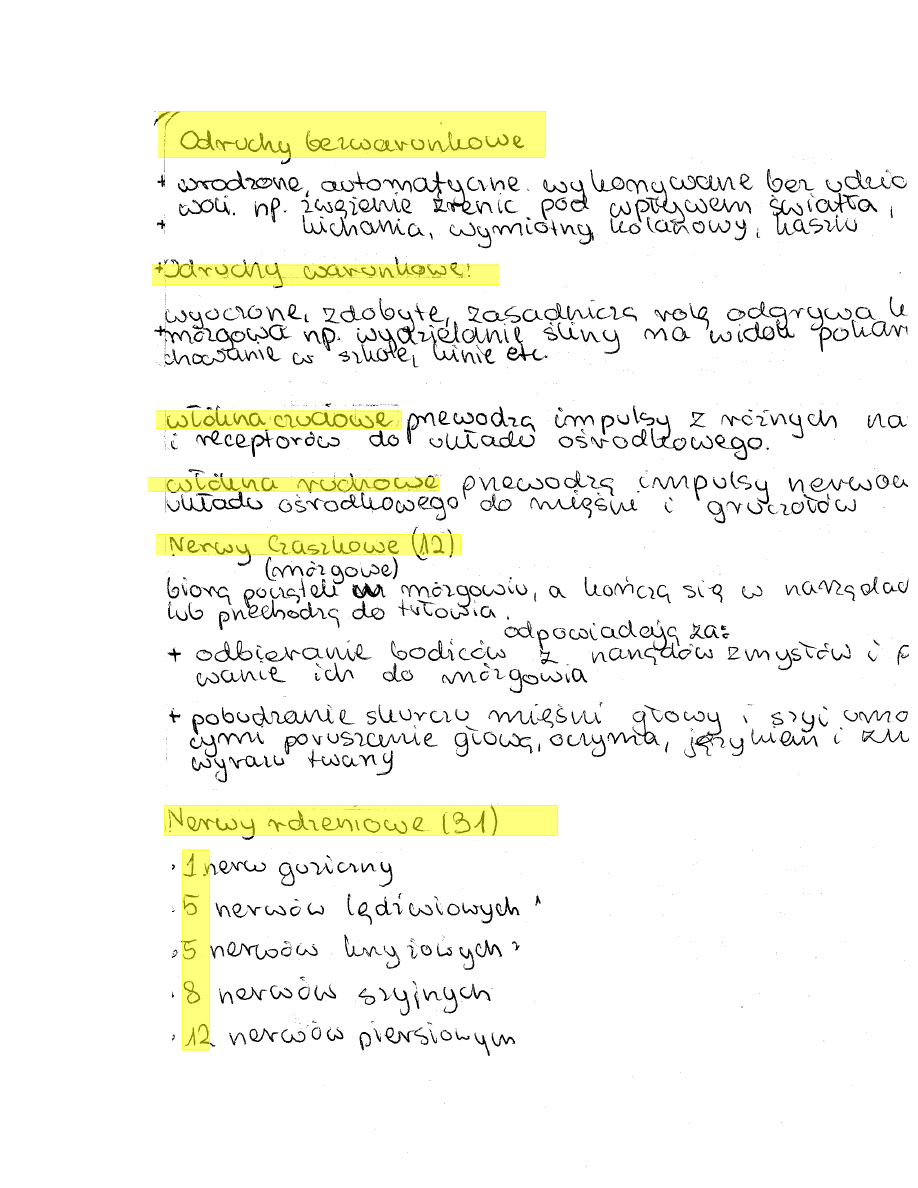 Odruchy bezwarunkowe
+ wrodzone, automatyczne. wykonywane bez udzia
woli. np. zwężenie źrenic pod wpływem światła,
+ kichania, wymiotny, kolanowy, kaszlu
+Odruchy warunkowe:
wyuczone, zdobyte, zasadniczą rolę odgrywa k
+mózgowa np. wydzielanie śliny na widok pokar
chowanie w szkole, kinie etc.
włókna czuciowe przewodzą impulsy z różnych na
i receptorów do układu ośrodkowego.
włókna ruchowe przewodzą impulsy nerwow
układu ośrodkowego do mięśni i gruczołów
Nerwy Czaszkowe (12)
(mózgowe)
biorą początek w mózgowiu, a kończą się w narządac
lub przechodzą do tułowia.
odpowiadają za:
+ odbieranie bodźców z narządów zmysłów i p
wanie ich do mózgowia
+ pobudzanie skurczu mięśni głowy i szyi umo
cymi poruszanie głową, oczyma, językiem i zm
wyrazu twarzy
Nerwy rdzeniowe (31)
· 1 nerw guziczny
· 5 nerwów lędźwiowych
· 5 nerwów krzyżowych
· 8 nerwów szyjnych
· 12 nerwów piersiowym